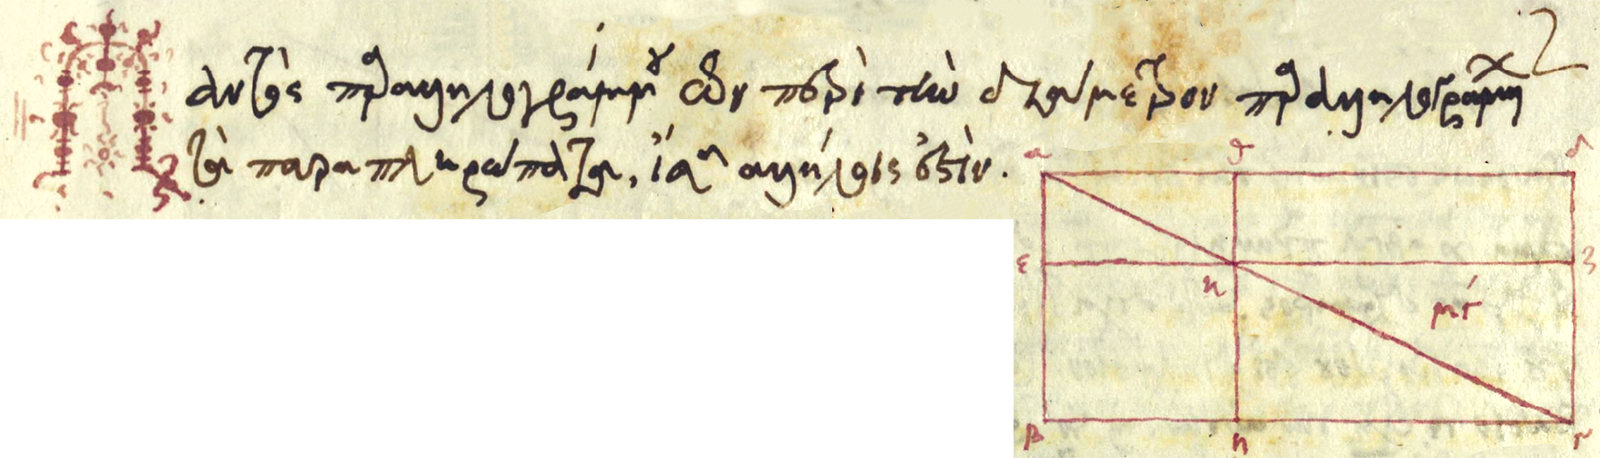 Παντὸς παραλληλογράμμου τῶν περὶ τὴν διάμετρον παραλληλογράμμων
τὰ παραπληρώματα, ἴσα ἀλλήλοις ἐστίν.
α θ δ
ε ζ
κ μγ
β η γ